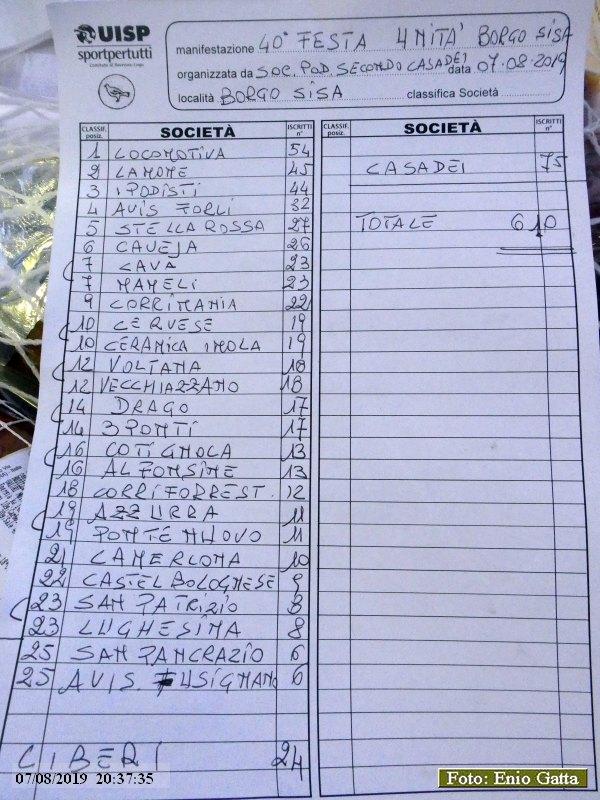 UISP
sportpertutti
manifestazione 40° FESTA UNITA' BORGO SISA
organizzata da SOC. POD. SECONDO CASADEI data 07.08.2019
località BORGO SISA classifica Società
CLASSIF. posiz. SOCIETÀ ISCRITTI n°
1 LOCOMOTIVA 54
2 LAMONE 45
3 I PODISTI 44
4 AVIS FORLI 32
5 STELLA ROSSA 27
6 CAVEJA 26
7 CAVA 23
7 MAMELI 23
9 CORRIMANIA 22
10 CERVESE 19
10 CERAMICA IMOLA 19
12 VOLTANA 18
12 VECCHIAZZANO 18
14 DRAGO 17
14 3 PONTI 17
16 COTIGNOLA 13
16 ALFONSINE 13
18 CORRIFORREST. 12
19 AZZURRA 11
19 PONTE NUOVO 11
21 CAMERLONA 10
22 CASTEL BOLOGNESE 9
23 SAN PATRIZIO 8
23 LUGHESINA 8
25 SAN PANCRAZIO 6
25 AVIS. FUSIGNANO 6
LIBERI 24
CLASSIF. posiz. SOCIETÀ ISCRITTI n°
CASADEI 75
TOTALE 610
07/08/2019 20:37:35
Foto: Enio Gatta